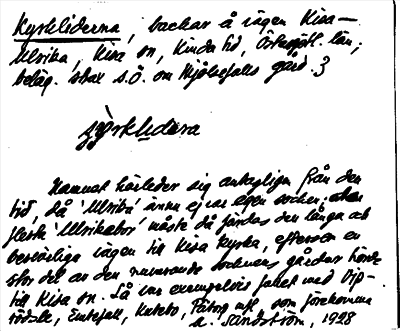 Kyrkliderna, backar å vägen Kisa–
Ulrika, Kisa sn, Kinda hd, Östergötl. län;
beläg. strax s.ö. om Mjölsefalls gård. 3
Namnet härleder sig antagligen från den
tid, då 'Ulrika' ännu ej var egen socken;
flesta 'Ulrikabor' måste då färdas den långa och
besvärliga vägen till Kisa kyrka, eftersom en
stor del av den nuvarande socknens gårdar hörde
till Kisa sn. Så var exempelvis fallet med
Emtefall, som förekomma
A. Sandström, 1928